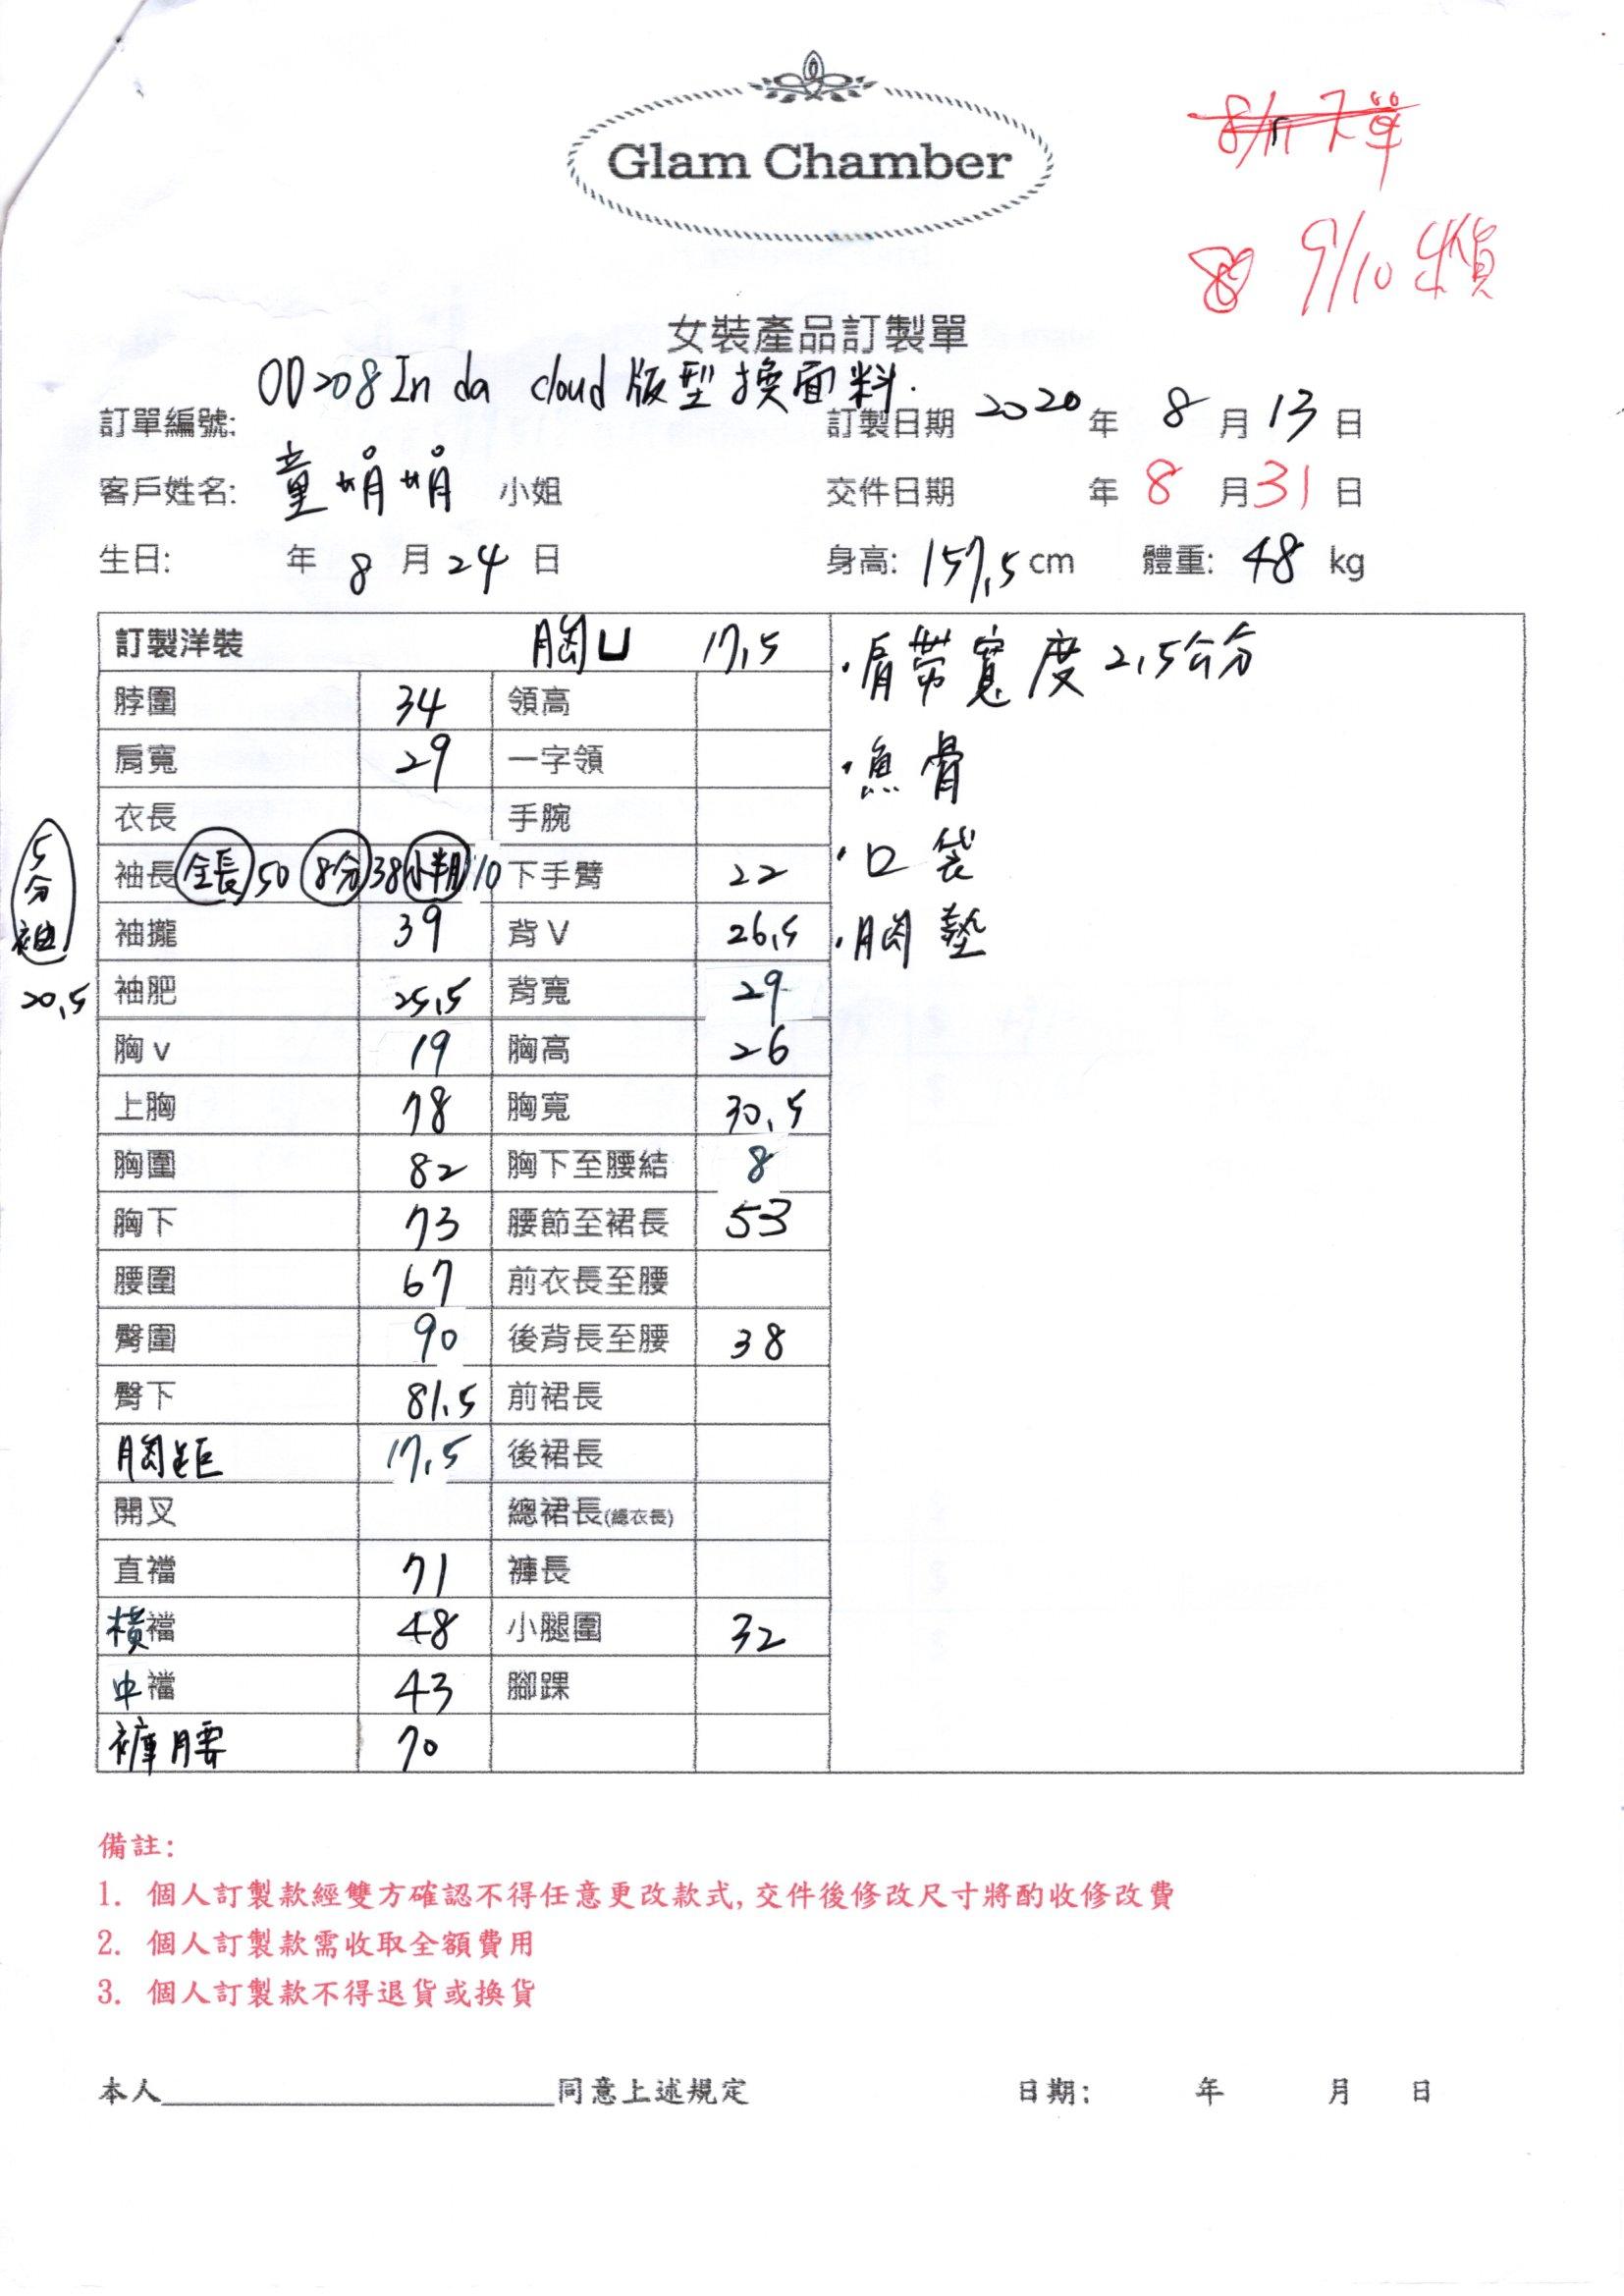 Glam Chamber
9/10
女裝產品訂製單
訂單編號: OD208 In da cloud 版型換面料.
訂製日期 2020 年 8 月 13 日
客戶姓名: 童娟娟 小姐
交件日期 年 8 月 31 日
生日: 年 8 月 24 日
身高: 157.5 cm 體重: 48 kg
訂製洋裝 胸口 17.5
脖圍 34 領高
肩寬 29 一字領
衣長 手腕
袖長 全長 50 8分 38 10 下手臂 22
5分袖 20.5
袖攏 39 背V 26.5
袖肥 25.5 背寬 29
胸v 19 胸高 26
上胸 78 胸寬 30.5
胸圍 82 胸下至腰結 8
胸下 73 腰節至裙長 53
腰圍 67 前衣長至腰
臀圍 90 後背長至腰 38
臀下 81.5 前裙長
胸距 17.5 後裙長
開叉 總裙長(總衣長)
直襠 71 褲長
橫襠 48 小腿圍 32
中襠 43 腳踝
褲腰 70
·肩帶寬度2.5公分
·魚骨
·口袋
·胸墊
備註:
1. 個人訂製款經雙方確認不得任意更改款式,交件後修改尺寸將酌收修改費
2. 個人訂製款需收取全額費用
3. 個人訂製款不得退貨或換貨
本人____________________同意上述規定 日期: 年 月 日